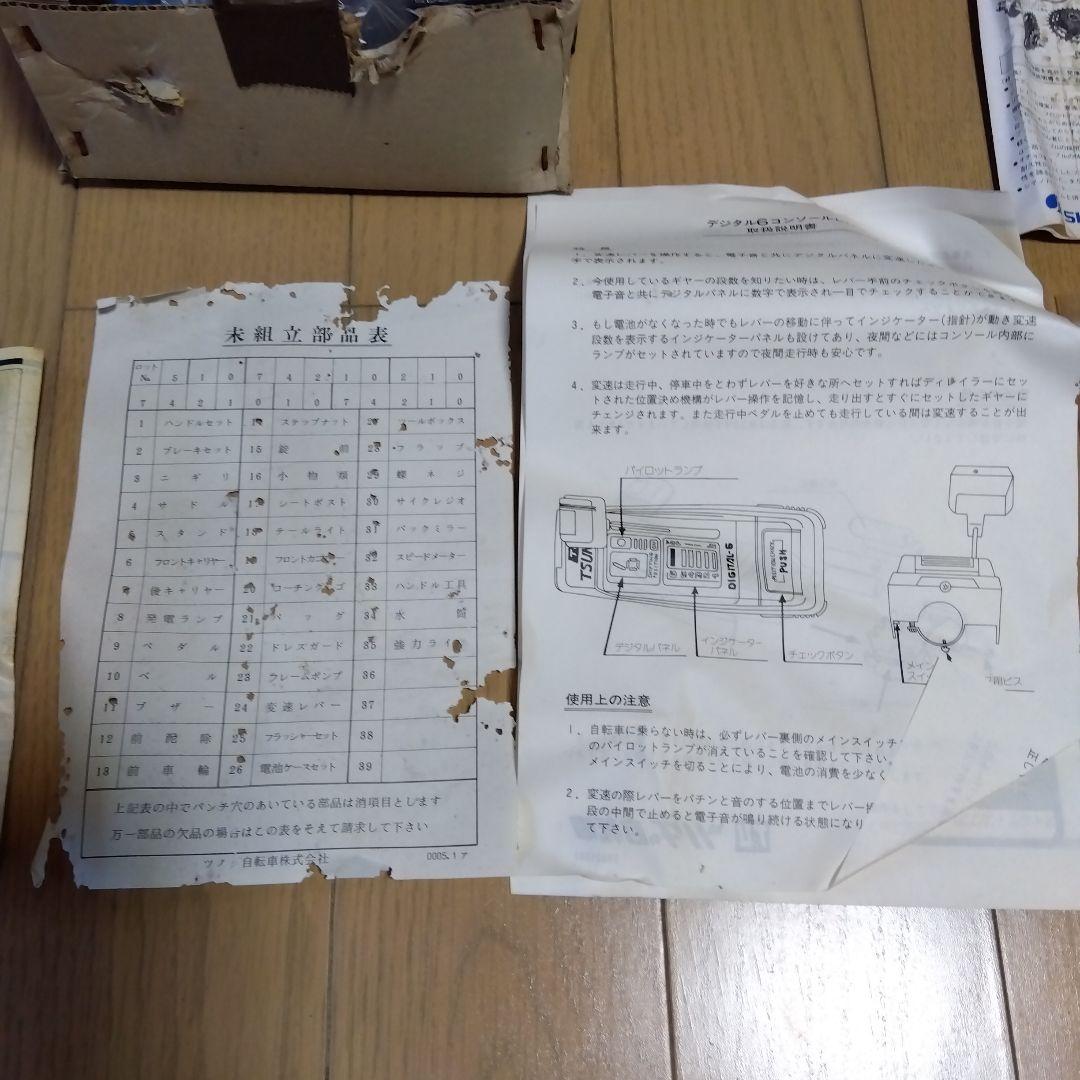 未組立部品表
ロット
№ 5 1 0 7 4 2 1 0 2 1 0
7 4 2 1 0 1 0 7 4 2 1 0
1 ハンドルセット 14 ステップナット 27 ールボックス
2 ブレーキセット 15 錠 前 28 フラップ
3 ニギリ 16 小物類 29 蝶ネジ
4 サドル 17 シートポスト 30 サイクレジオ
5 スタンド 18 テールライト 31 バックミラー
6 フロントキャリヤー 19 フロントカ ー 32 スピードメーター
後キャリヤー 20 ローチン ゴ 33 ハンドル工具
8 発電ランプ 21 グ 34 水筒
9 ペダル 22 ドレスガード 35 強力ライ
10 ベル 23 フレームポンプ 36
11 ブザー 24 変速レバー 37
12 前 除 25 フラッシャーセット 38
13 前車輪 26 電池ケースセット 39
上記表の中でパンチ穴のあいている部品は消項目とします
万一部品の欠品の場合はこの表をそえて請求して下さい
ツノ 自転車株式会社 0005.1ア
デジタル6コンソールレ
取扱説明書
特 長
1、変速レバーを操作すると、電子音と共にデジタルパネルに変速
字で表示されます。
2、今使用しているギヤーの段数を知りたい時は、レバー手前のチェックボ
電子音と共にデジタルパネルに数字で表示され一目でチェックすることができます
3、もし電池がなくなった時でもレバーの移動に伴ってインジケーター(指針)が動き変速
段数を表示するインジケーターパネルも設けてあり、夜間などにはコンソール内部に
ランプがセットされていますので夜間走行時も安心です。
4、変速は走行中、停車中をとわずレバーを好きな所へセットすればディレイラーにセッ
トされた位置決め機構がレバー操作を記憶し、走り出すとすぐにセットしたギヤーに
チェンジされます。また走行中ペダルを止めても走行している間は変速することが出
来ます。
パイロットランプ
TSUN
DIGITAL-6
PUSH
デジタルパネル
インジケーター
パネル
チェックボタン
メイン
スイッ
用ビス
使用上の注意
1、自転車に乗らない時は、必ずレバー裏側のメインスイッチ
のパイロットランプが消えていることを確認して下さい。
メインスイッチを切ることにより、電池の消費を少なく
2、変速の際レバーをパチンと音のする位置までレバー操
段の中間で止めると電子音が鳴り続ける状態になり
て下さい。